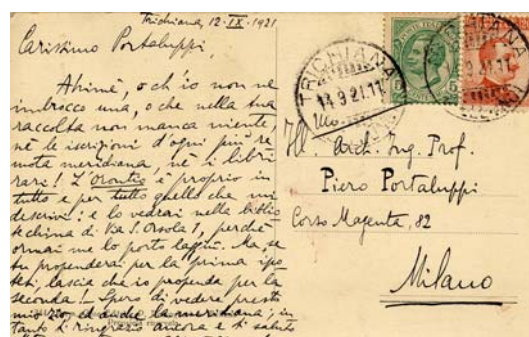 Trichiana, 12-IX-1921
Carissimo Portaluppi,
Ahimè, o ch'io non ne
imbrocco una, o che nella tua
raccolta non manca niente,
nè le iscrizioni d'ogni più re-
mota meridiana, nè i libri
rari! L'Orontio è proprio in
tutto e per tutto quello che mi
descrivi: e lo vedrai nella biblio
techina di Via S. Orsola 1, perchè
ormai me lo porto laggiù. Ma, se
tu propenderai per la prima ipo
tesi, lascia che io propenda per la
seconda! - Spero di vedere presto
mio zio, ed anche la meridiana; in
tanto ti ringrazio ancora e ti saluto
TRICHIANA
14.9.21.11
Ill. Arch. Ing. Prof.
Piero Portaluppi
Corso Magenta, 82
Milano